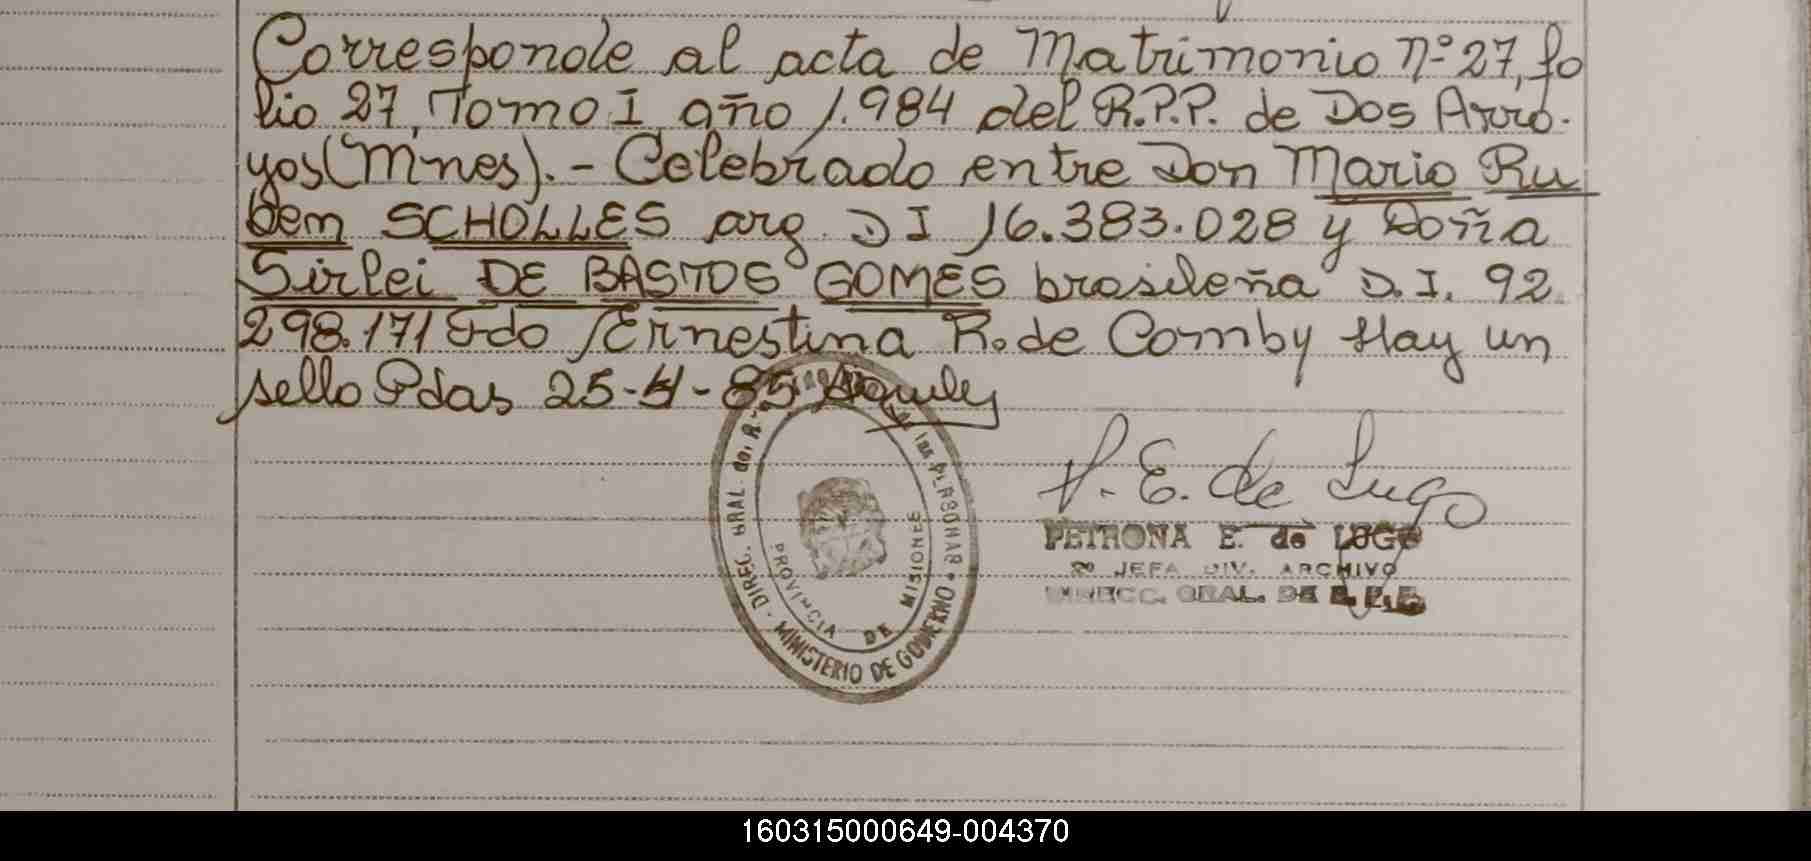 Corresponde al acta de Matrimonio Nº 27, fo
lio 27, Tomo I año 1.984 del R.P.P. de Dos Arro-
yos (Mnes). - Celebrado entre Don Mario Ru
bem SCHOLLES arg. D I 16.383.028 y Doña
Sirlei DE BASTOS GOMES brasileña D.I. 92.
298.171 Fdo Ernestina R. de Comby Hay un
sello Pdas 25-4-85
DIREC. GRAL. del R. las PERSONAS
MINISTERIO DE GOBIERNO
PROVINCIA DE MISIONES
P. E. de Lugo
PETRONA E. de LUGO
2º JEFA DIV. ARCHIVO
DIRECC. GRAL. DE R. P. P.
160315000649-004370